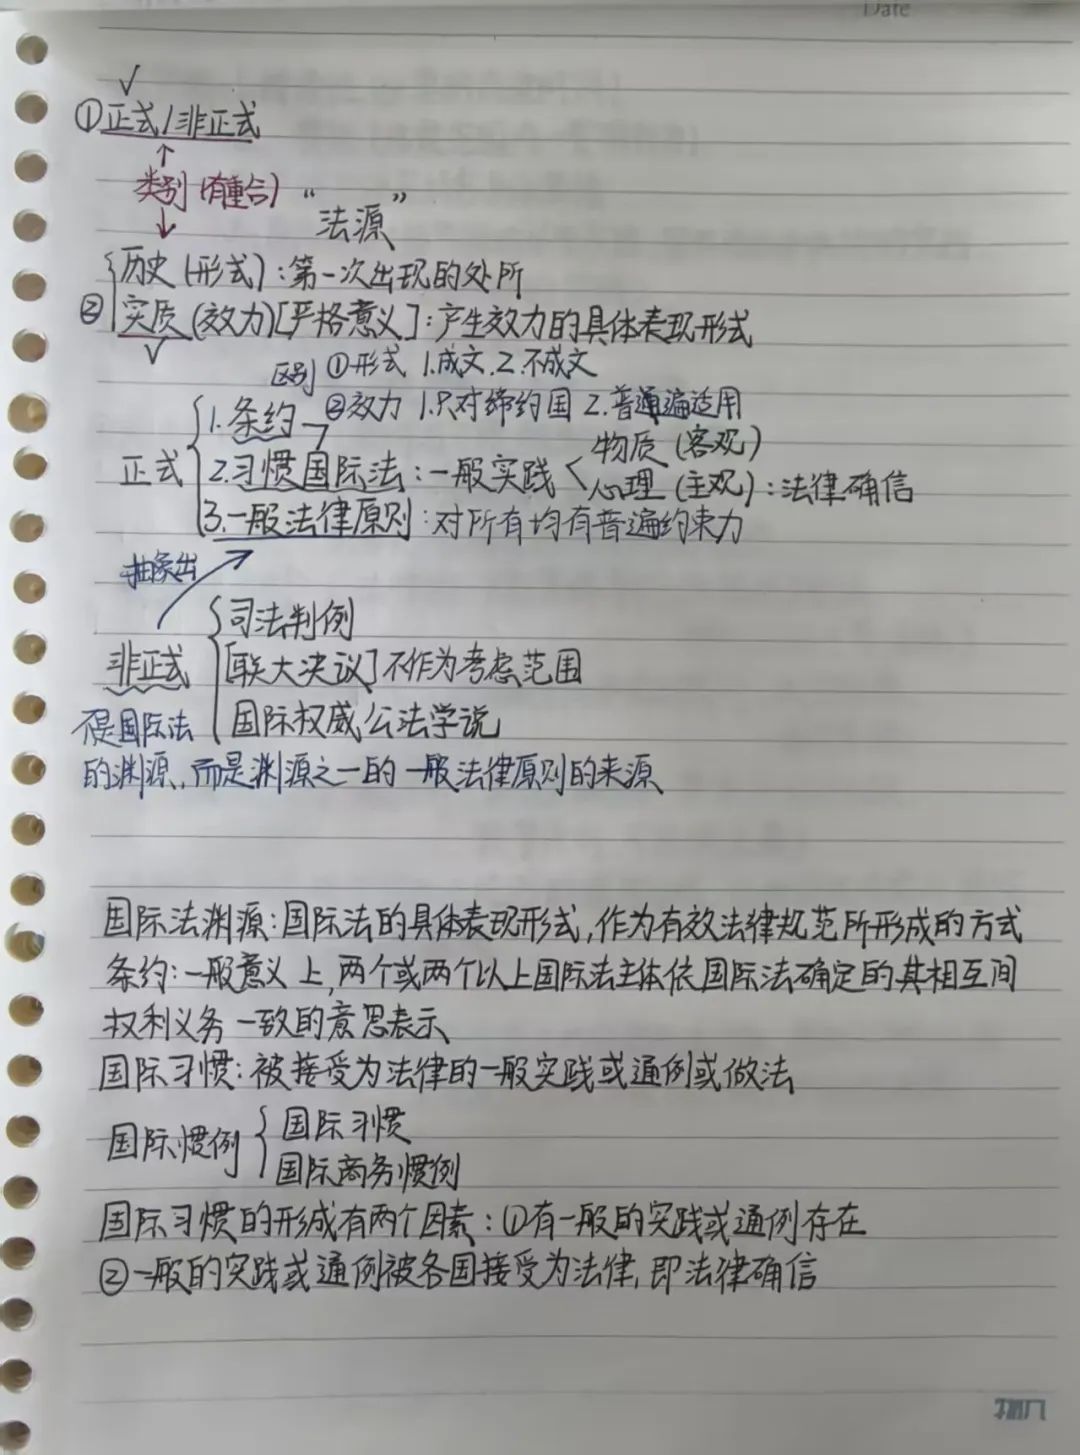 Date
√
①正式/非正式
↑
类别(有重合)
↓
“法源”
历史(形式):第一次出现的处所
② 实质(效力)[严格意义]:产生效力的具体表现形式
√
区别 ①形式 1.成文.2.不成文
②效力 1.只对缔约国 2.普遍适用
正式
1.条约
2.习惯国际法:一般实践
物质(客观)
心理(主观):法律确信
3.一般法律原则:对所有均有普遍约束力
抽象出
非正式
司法判例
[联大决议]不作为考虑范围
国际权威公法学说
不是国际法
的渊源,而是渊源之一的一般法律原则的来源
国际法渊源:国际法的具体表现形式,作为有效法律规范所形成的方式
条约:一般意义上,两个或两个以上国际法主体依国际法确定的其相互间
权利义务一致的意思表示
国际习惯:被接受为法律的一般实践或通例或做法
国际惯例
国际习惯
国际商务惯例
国际习惯的形成有两个因素:①有一般的实践或通例存在
②一般的实践或通例被各国接受为法律,即法律确信